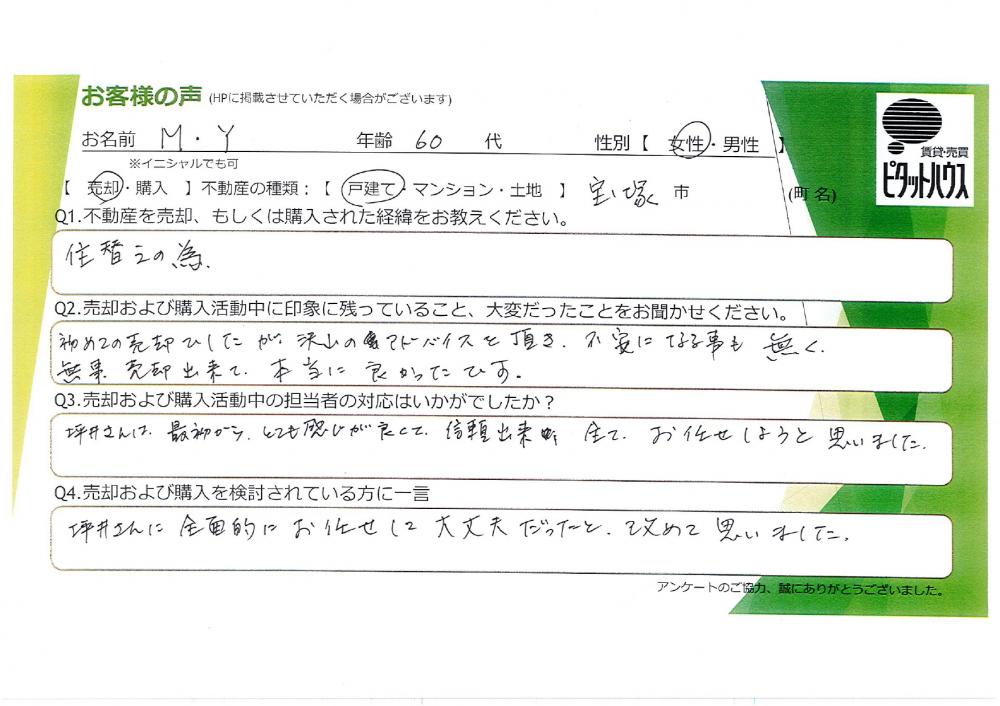 お客様の声 (HPに掲載させていただく場合がございます)
賃貸・売買
ピタットハウス
お名前 M・Y 年齢 60 代 性別【 女性・男性 】
※イニシャルでも可
【 売却・購入 】不動産の種類:【 戸建て・マンション・土地 】 宝塚 市 (町名)
Q1.不動産を売却、もしくは購入された経緯をお教えください。
住替えの為.
Q2.売却および購入活動中に印象に残っていること、大変だったことをお聞かせください。
初めての売却でしたが、沢山のアドバイスを頂き、不安になる事も無く、
無事売却出来て、本当に良かったです。
Q3.売却および購入活動中の担当者の対応はいかがでしたか？
坪井さんは、最初から、とても感じが良くて、信頼出来 全て、お任せしようと思いました.
Q4.売却および購入を検討されている方に一言
坪井さんに全面的にお任せして大丈夫だったと、改めて思いました.
アンケートのご協力、誠にありがとうございました。